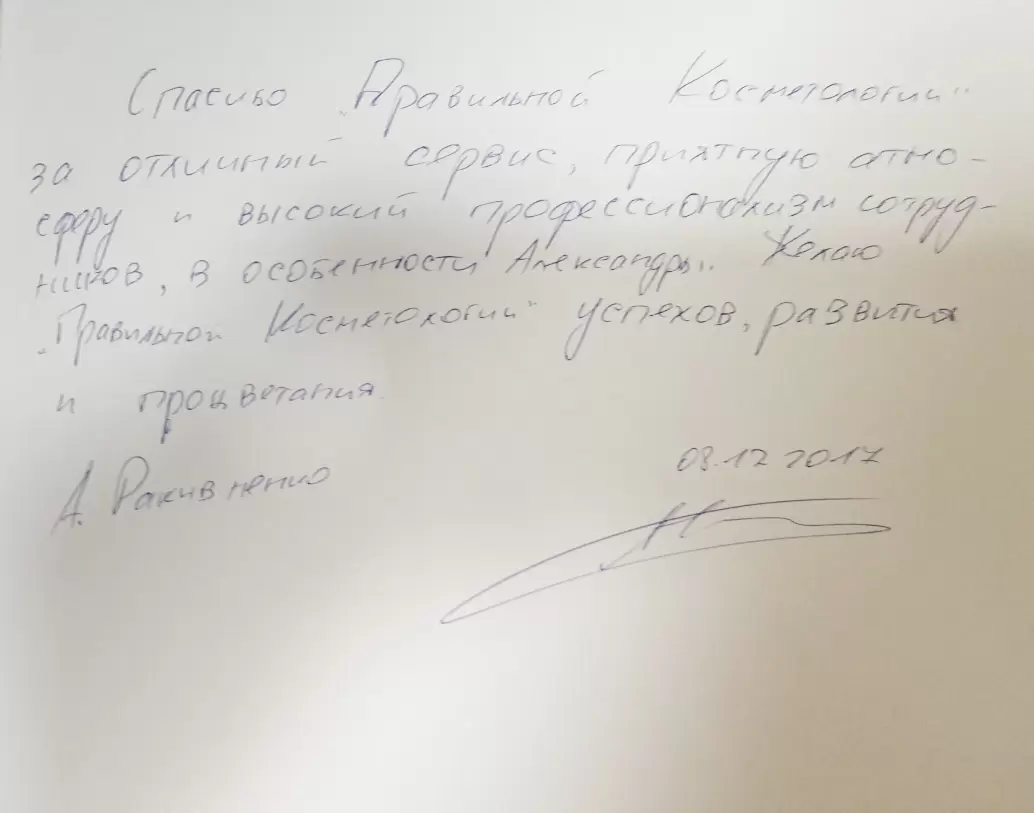 Спасибо „Правильной Косметологии“
за отличный сервис, приятную атмо-
сферу и высокий профессионализм сотруд-
ников, в особенности Александры. Желаю
„Правильной Косметологии“ успехов, развития
и процветания.
А.
08.12 2017